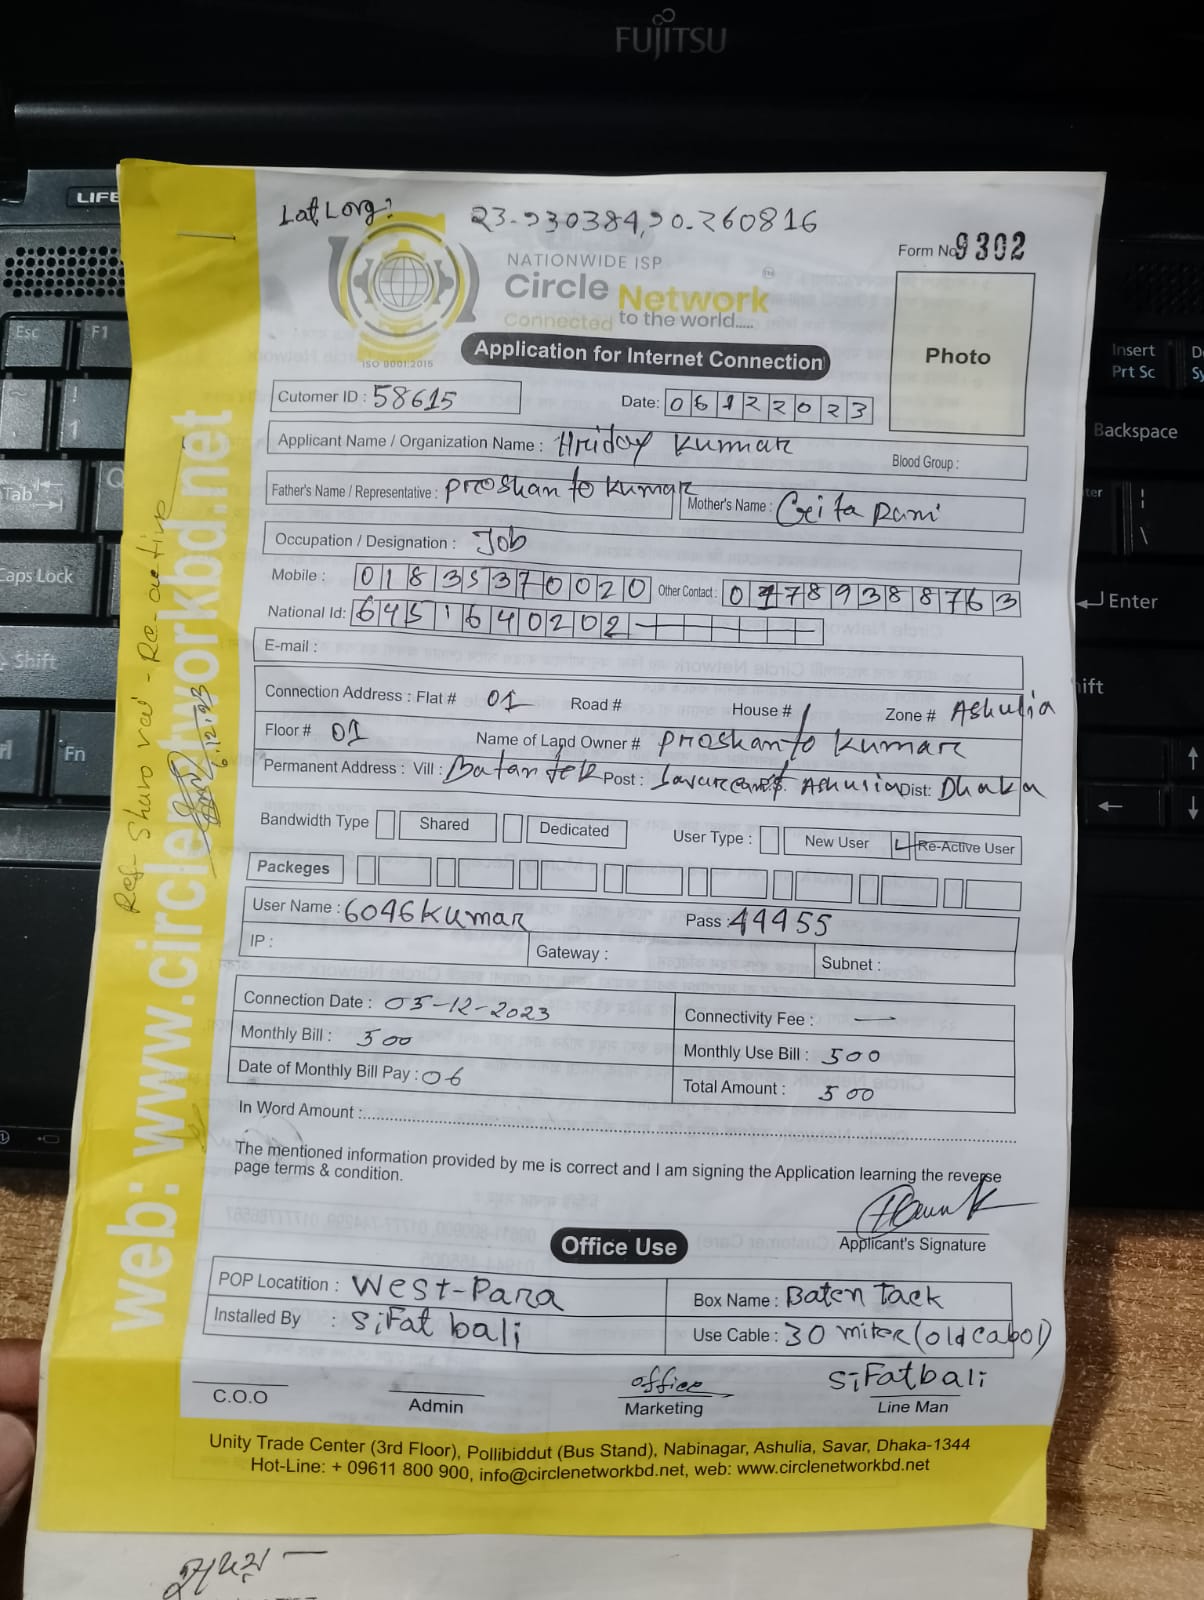 FUJITSU
LatLong: 23.930384,90.260816
Form No 9302
NATIONWIDE ISP
Circle Network
Connected to the world.....
ISO 9001:2015
Application for Internet Connection
Photo
Cutomer ID : 58615
Date: 06122023
Applicant Name / Organization Name : Hriday Kumar
Blood Group :
Father's Name / Representative : Proshanto Kumar
Mother's Name : Geita Rani
Occupation / Designation : Job
Mobile : 01835370020 Other Contact : 01789388763
National Id: 6451640202
E-mail :
Connection Address : Flat # 01 Road # House # Zone # Ashulia
Floor # 01 Name of Land Owner # Proshanto Kumar
Permanent Address : Vill : Batantek Post : Savar Ashulia Dist: Dhaka
Bandwidth Type Shared Dedicated User Type : New User Re-Active User
Packeges
User Name : 6046kumar Pass : 44455
IP : Gateway : Subnet :
Connection Date : 05-12-2023 Connectivity Fee : —
Monthly Bill : 500 Monthly Use Bill : 500
Date of Monthly Bill Pay : 06 Total Amount : 500
In Word Amount :
The mentioned information provided by me is correct and I am signing the Application learning the reverse
page terms & condition.
Applicant's Signature
Office Use
POP Locatition : West-Para Box Name : Baten Tack
Installed By : SiFat bali Use Cable : 30 miter (old cabol)
C.O.O Admin office Marketing SiFatbali Line Man
Unity Trade Center (3rd Floor), Pollibiddut (Bus Stand), Nabinagar, Ashulia, Savar, Dhaka-1344
Hot-Line: + 09611 800 900, info@circlenetworkbd.net, web: www.circlenetworkbd.net
web: www.circlenetworkbd.net
Ref- Sharo vai - Re-active
6.12.23
LIFE
Esc
F1
Tab
Q
Caps Lock
Shift
Fn
Insert
Prt Sc
Backspace
Enter